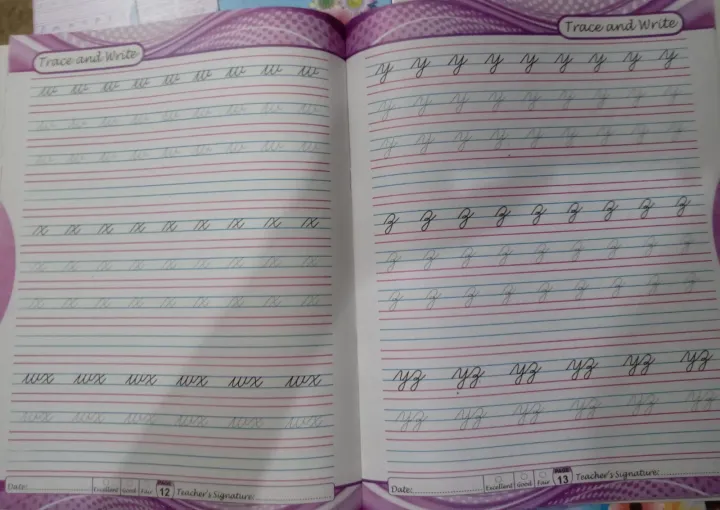 Trace and Write
w w w w w w w w w
w w w w w w w w w
w w w w w w w w w
x x x x x x x x x
x x x x x x x x x
x x x x x x x x x
wx wx wx wx wx wx
wx wx wx wx wx wx
Date:
Excellent Good Fair PAGE 12 Teacher's Signature:
Trace and Write
y y y y y y y y y
y y y y y y y y y
y y y y y y y y y
z z z z z z z z z
z z z z z z z z z
z z z z z z z z z
yz yz yz yz yz yz
yz yz yz yz yz yz
Date:
Excellent Good Fair PAGE 13 Teacher's Signature: